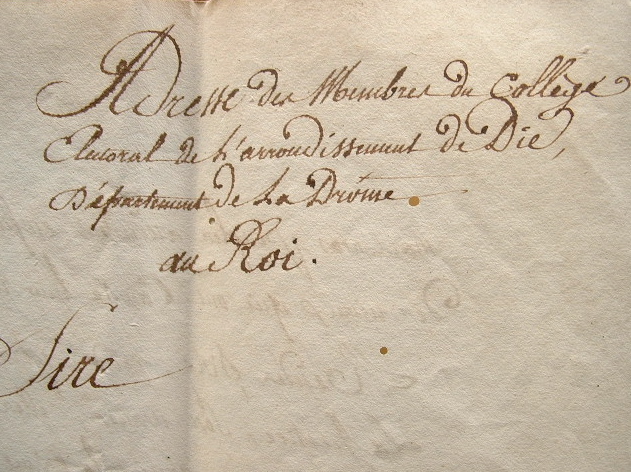 Adresse des Membres du Collège
Electoral de L'arrondissement de Die,
Département de La Drôme.
au Roi.
Sire